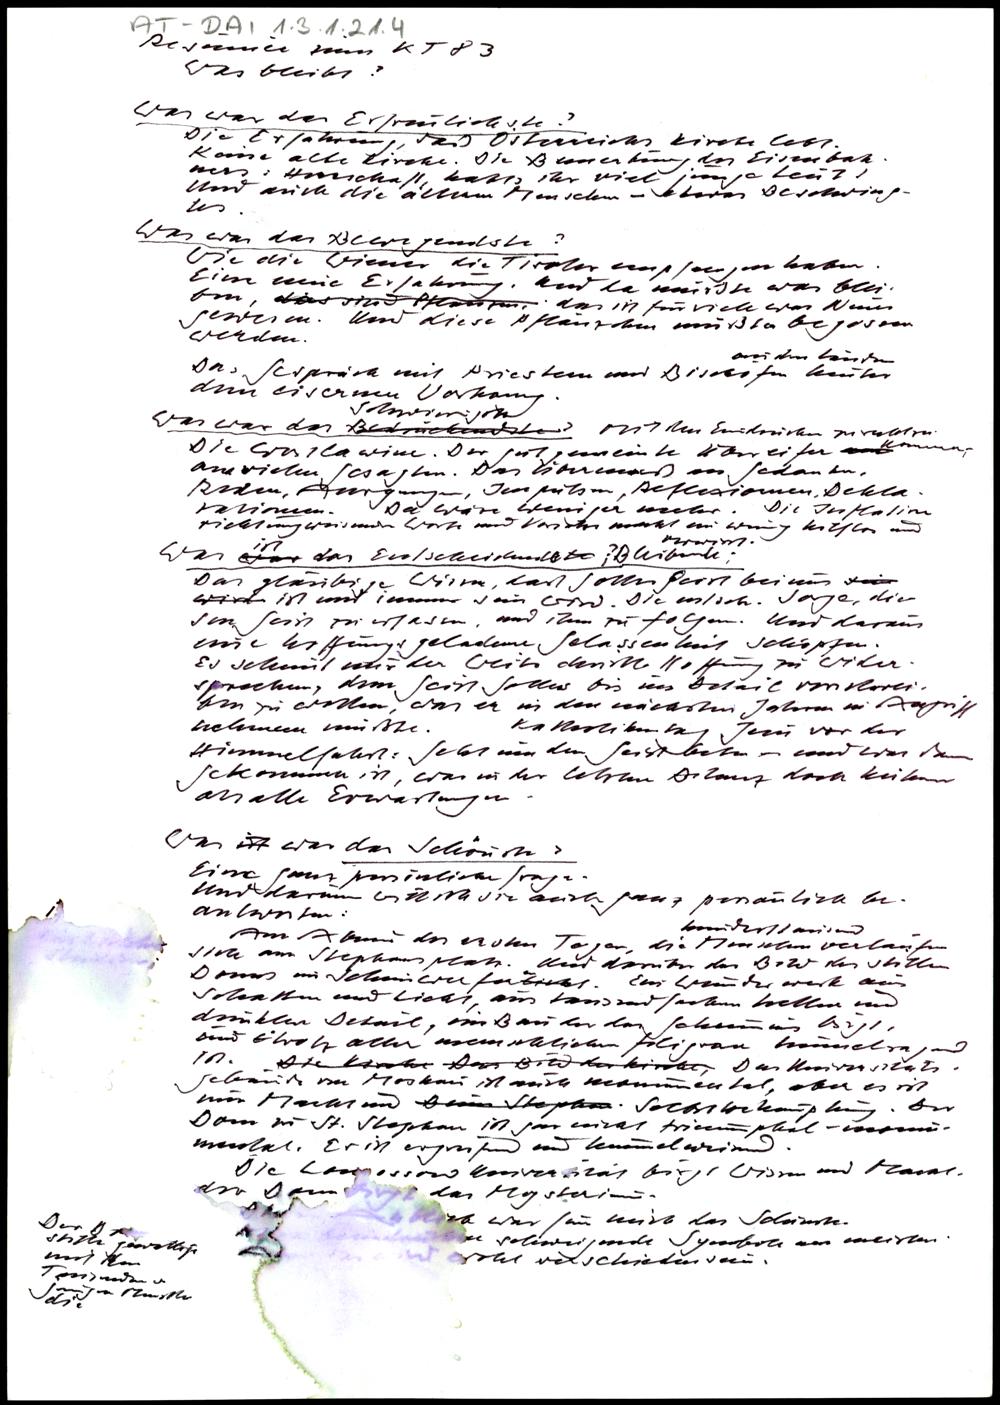 AT-DAI 1.3.1.21.4
Resümée zum KT 83
Was bleibt?
Was war das Erfreulichste?
Die Erfahrung, daß Österreichs Kirche lebt.
Keine alte Kirche. Die Bemerkung des Eisenbah-
ners: Herrschaft, habts ihr viel junge Leut!
Und auch die älteren Menschen – etwas Beschwing-
tes.
Was war das Bewegendste?
Wie die Wiener die Tiroler empfangen haben.
Eine neue Erfahrung. Und da müßte was blei-
ben, das sind Pflanzen. das ist für viele was Neues
gewesen. Und diese Pflänzchen müßten begossen
werden.
aus den Ländern
Das Gespräch mit Priestern und Bischöfen hinter
dem eisernen Vorhang.
Schwierigste
Was war das Bedrückendste? mit den Eindrücken zurecht zu
kommen,
Die Wortlawine. Der gut gemeinte Übereifer
an vielen Gesagten. Das Übermaß an Gedanken,
Reden, Anregungen, Impulsen, Reflexionen, Dekla-
rationen. Da wäre weniger mehr. Die Inflation
richtungweisender Worte und macht ein wenig hilflos und
verwirrt.
ist
Was war das Entscheidendste, Bleibende?
Das gläubige Wissen, daß Gottes Geist bei uns
wird ist und immer sein wird. Die Sorge, die-
sen Geist zu erfassen, und ihm zu folgen. Und daraus
eine hoffnungsgeladene Gelassenheit schöpfen.
Es scheint mir der Hoffnung zu wider-
sprechen, dem Geist Gottes bis ins Detail vorschrei-
ben zu wollen, was er in den nächsten Jahren in Angriff
nehmen müßte. Katholikentag Jesu vor der
Himmelfahrt: Geht um den Geist beten – und was dann
gekommen ist, war in der letzten Bilanz doch kühner
als alle Erwartungen.
Was ist war das Schönste?
Eine ganz persönliche Frage.
Und darum will ich sie auch ganz persönlich be-
antworten:
hunderttausend
Am Abend des ersten Tages, die Menschen verlaufen
sich am Stephansplatz. Und darüber das Bild des stillen
Domes im Scheinwerferlicht. Ein Wunderwerk aus
Schatten und Licht, aus tausendfachem hellem und
dunklem Detail, ein Bau der das Geheimnis birgt,
und trotz aller menschlichen filigran himmelragend
ist. Die Kirche Das Bild der Kirche, Das Universitäts-
gebäude von Moskau ist auch monumental, aber es ist
nur Macht und Dom Stephan Selbstbehauptung. Der
Dom zu St. Stephan ist gar nicht triumphal-monu-
mental. Er ist ergreifend und himmelweisend.
Die Lomonossow Universität birgt Wissen und Macht.
der Dom birgt das Mysterium.
war für mich das Schönste.
schweigende Symbole am meisten.
wohl verschieden sein.
Der
stille gewaltige
mit den
Tausenden v.
jungen Menschen
die